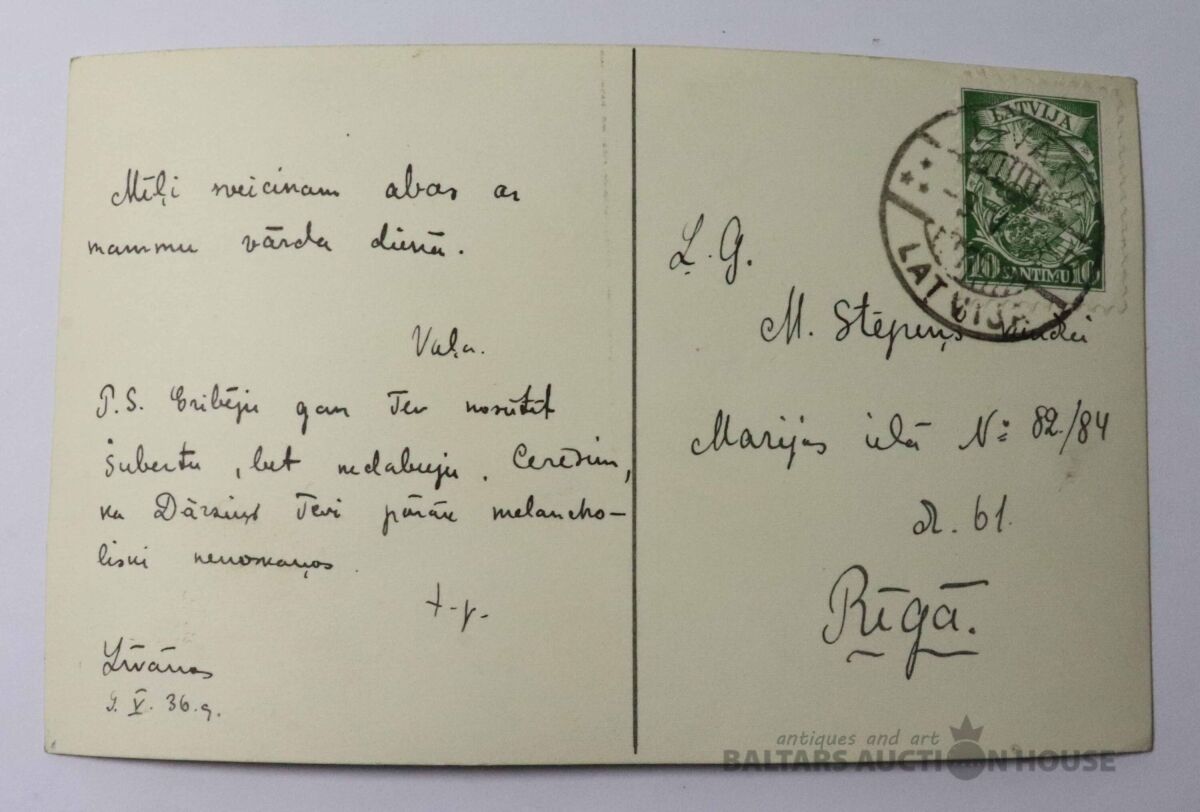 Mīļi sveicinam abas ar
mammu vārda dienā.
Vaļa.
P.S. Gribēju gan Tev nosūtīt
Šubertu, bet nedabuju. Cerēsim,
ka Dārziņš Tevi pārāk melancho-
liski nenoskaņos.
Līvānos
9. V. 36.g.
Ļ. G.
M. Stēpiņš kundzei
Marijas ielā № 82./84
dz. 61.
Rīgā.
LATVIJA
10 SANTIMU 10
LATVIJA
antiques and art
BALTARS AUCTION HOUSE